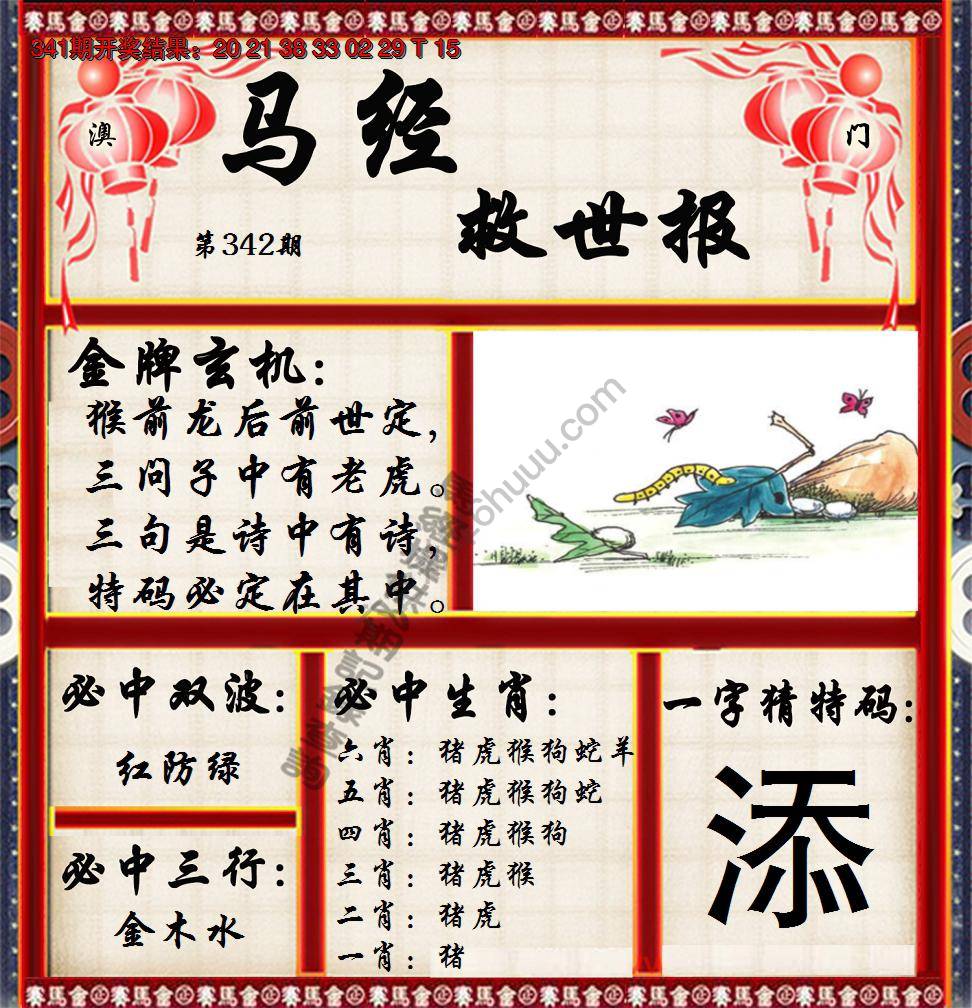 賽馬會
341期开奖结果：20 21 38 33 02 29 T 15
澳
门
马经
救世报
第342期
金牌玄机：
猴前龙后前世定，
三问子中有老虎。
三句是诗中有诗，
特码必定在其中。
必中双波：
红防绿
必中三行：
金木水
必中生肖：
六肖：猪虎猴狗蛇羊
五肖：猪虎猴狗蛇
四肖：猪虎猴狗
三肖：猪虎猴
二肖：猪虎
一肖：猪
一字猜特码：
添